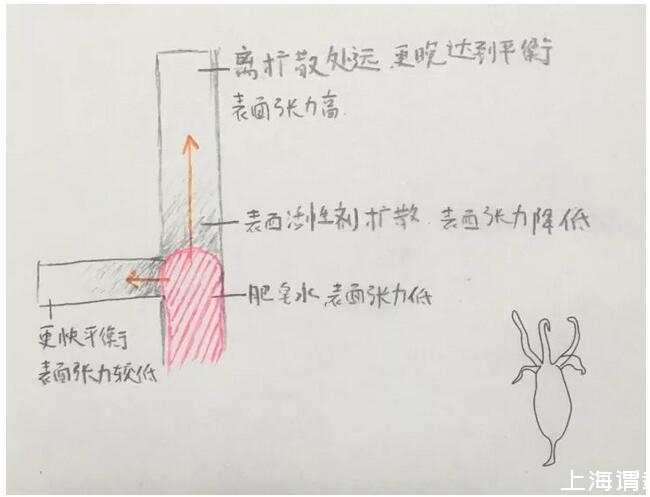 离扩散处远 更晚达到平衡
表面张力高.
表面活性剂扩散 表面张力降低
肥皂水 表面张力低
更快平衡
表面张力较低
上海谓